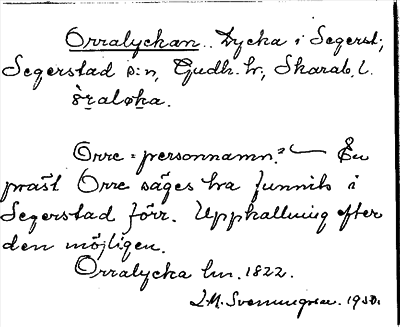 Orralyckan. Lycka i Segerst;
Segerstad s:n, Gudh. hr, Skarab. l.
òraløka.
Orre = personnamn? — En
präst Orre säges ha funnits i
Segerstad förr. Uppkallning efter
den möjligen.
Orralycka lm. 1822.
I. M. Svenungsen. 1930.